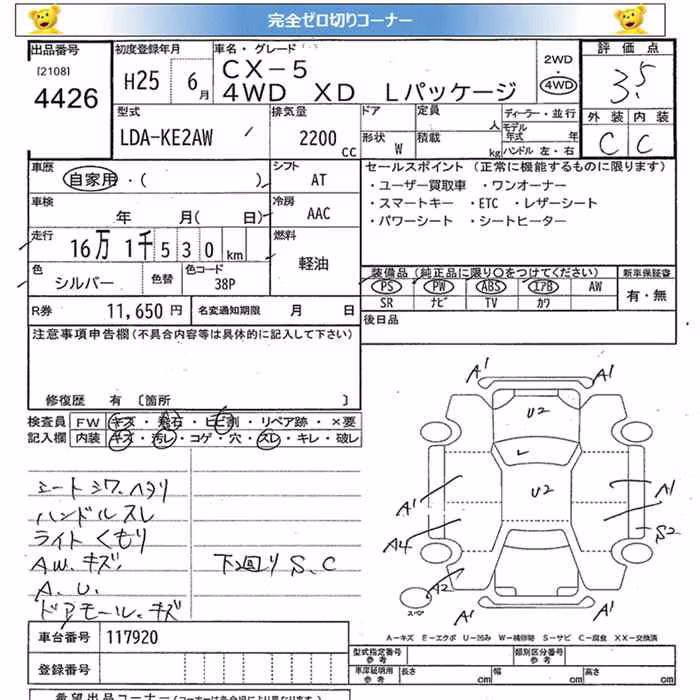 完全ゼロ切りコーナー
出品番号
[2108]
4426
初度登録年月
H25 6月
車名・グレード
CX-5
4WD XD Lパッケージ
2WD
4WD
評価点
3.5
外装 内装
C C
型式
LDA-KE2AW
排気量
2200
cc
ドア
形状
W
定員
人
積載
kg
ディーラー・並行
モデル
年式 年
ハンドル 左・右
車歴
自家用・( )
シフト
AT
車検
年 月( 日)
冷房
AAC
走行
16万 1千 5 3 0 km
燃料
軽油
色
シルバー
色替
色コード
38P
R券
11,650 円
名変通知期限 月 日
セールスポイント (正常に機能するものに限ります)
・ユーザー買取車 ・ワンオーナー
・スマートキー ・ETC ・レザーシート
・パワーシート ・シートヒーター
装備品(純正品に限り○をつけてください)
PS PW ABS エアB AW
SR ナビ TV カワ
新車保証書
有・無
後日品
注意事項申告欄(不具合内容等は具体的に記入して下さい)
修復歴 有 〔箇所 〕
検査員
記入欄
FW キズ・飛石・ヒビ割・リペア跡・×要
内装 キズ・汚レ・コゲ・穴・スレ・キレ・破レ
シート シワ、ヘタリ
ハンドルスレ
ライト くもり
A.W. キズ
A. U.
ドアモール、キズ
下回り S、C
A1 A1
U2
U2
A1 A1
A4 S2
A2
スペア
A1 A1
A−キズ E−エクボ U−凹み W−補修跡 S−サビ C−腐食 XX−交換済
車台番号
117920
登録番号
型式指定番号
参考
類別区分番号
参考
車庫証明用
参考
長さ cm
幅 cm
高さ cm
希望出品コーナー